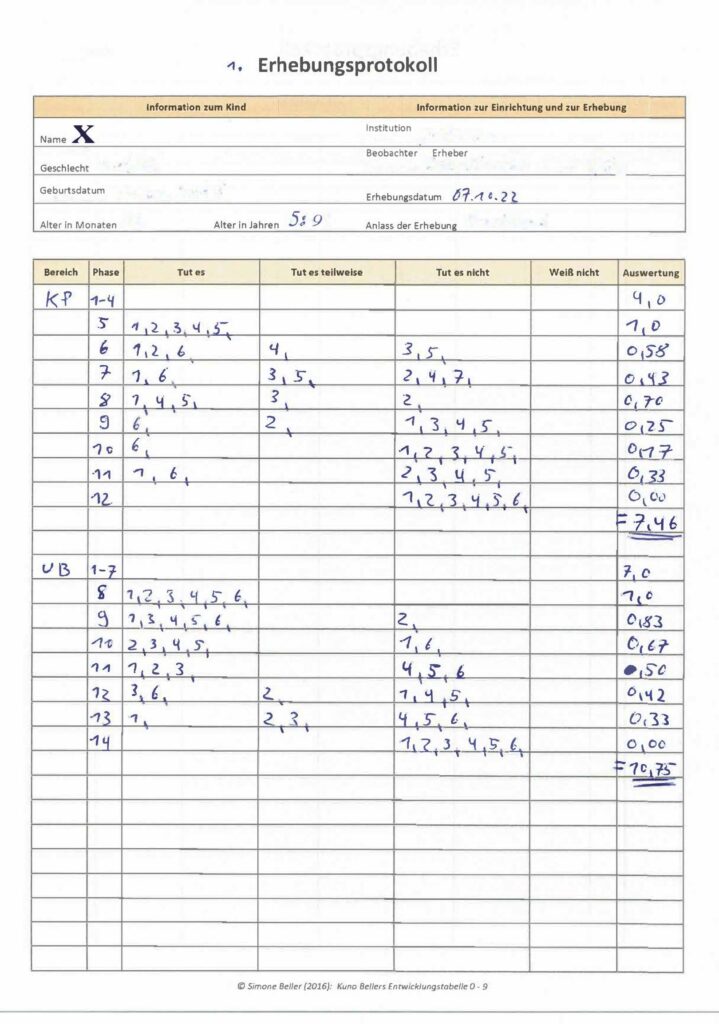 1. Erhebungsprotokoll
Information zum Kind Information zur Einrichtung und zur Erhebung
Name X Institution
Geschlecht Beobachter Erheber
Geburtsdatum Erhebungsdatum 07.10.22
Alter in Monaten Alter in Jahren 5:9 Anlass der Erhebung
Bereich Phase Tut es Tut es teilweise Tut es nicht Weiß nicht Auswertung
KP 1-4 4,0
5 1,2,3,4,5, 1,0
6 1,2,6, 4, 3,5, 0,58
7 1,6, 3,5, 2,4,7, 0,43
8 1,4,5, 3, 2, 0,70
9 6, 2, 1,3,4,5, 0,25
10 6, 1,2,3,4,5, 0,17
11 1,6, 2,3,4,5, 0,33
12 1,2,3,4,5,6, 0,00
=7,46
UB 1-7 7,0
8 1,2,3,4,5,6, 1,0
9 1,3,4,5,6, 2, 0,83
10 2,3,4,5, 1,6, 0,67
11 1,2,3, 4,5,6 0,50
12 3,6, 2, 1,4,5, 0,42
13 1, 2,3, 4,5,6, 0,33
14 1,2,3,4,5,6, 0,00
=10,75
© Simone Beller (2016): Kuno Bellers Entwicklungstabelle 0 - 9